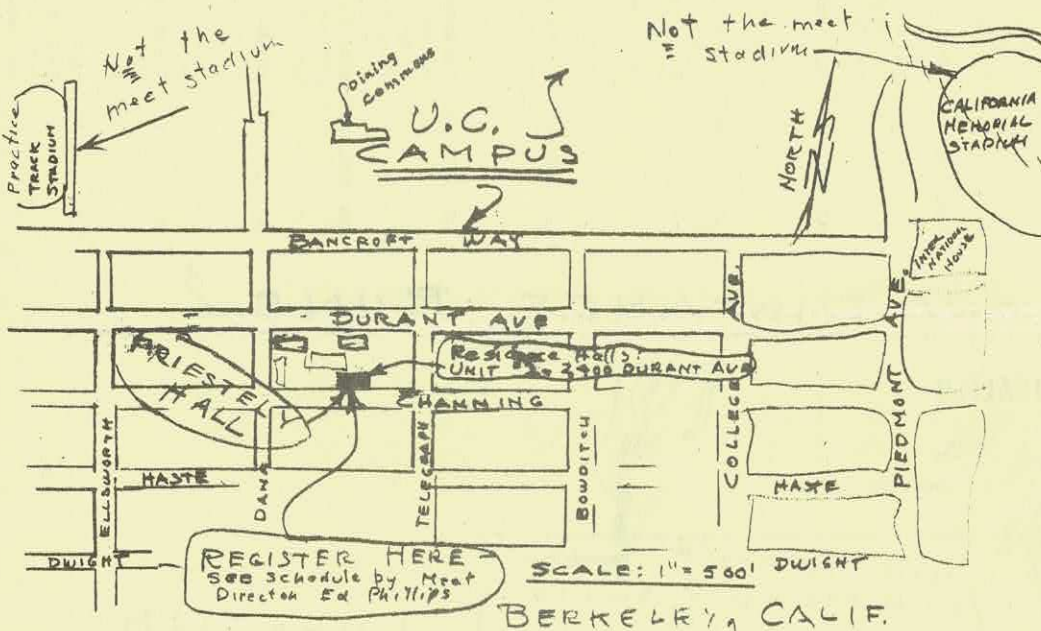 Not the
meet stadium
Practice
TRACK
STADIUM
Dining
commons
U.C.
CAMPUS
Not the meet
stadium
NORTH
CALIFORNIA
MEMORIAL
STADIUM
BANCROFT WAY
INTER
NATIONAL
HOUSE
DURANT AVE
PRIESTELY
HALL
Residence Halls:
UNIT 2400 DURANT AVE
CHANNING
ELLSWORTH
DANA
TELEGRAPH
BOWDITCH
COLLEGE AVE.
PIEDMONT AVE.
HASTE
HASTE
DWIGHT
DWIGHT
REGISTER HERE
See schedule by Meet
Director Ed Phillips
SCALE: 1" = 500'
BERKELEY, CALIF.